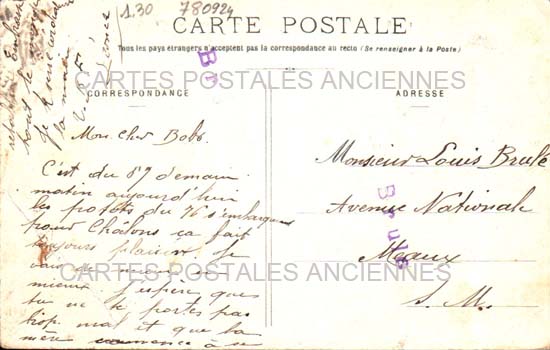 1.30
780924
CARTE POSTALE
Tous les pays étrangers n'acceptent pas la correspondance au recto (Se renseigner à la Poste)
CARTES POSTALES ANCIENNES
CORRESPONDANCE
ADRESSE
Mon cher Bobo.
C'est du 89 demain
matin aujourd'hui
les potots du 76 s'embarquent
pour Châlons ça fait
toujours plaisir. Je
vais de mieux en
mieux j'espère que
tu ne te portes pas
trop mal et que ta
mère commence à se
Monsieur Louis Brulé
Avenue Nationale
Meaux
S. M.
Brulé
CARTES POSTALES ANCIENNES
tous
la main